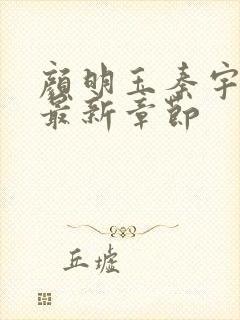 顏明玉秦宇
最新章節
丘墟